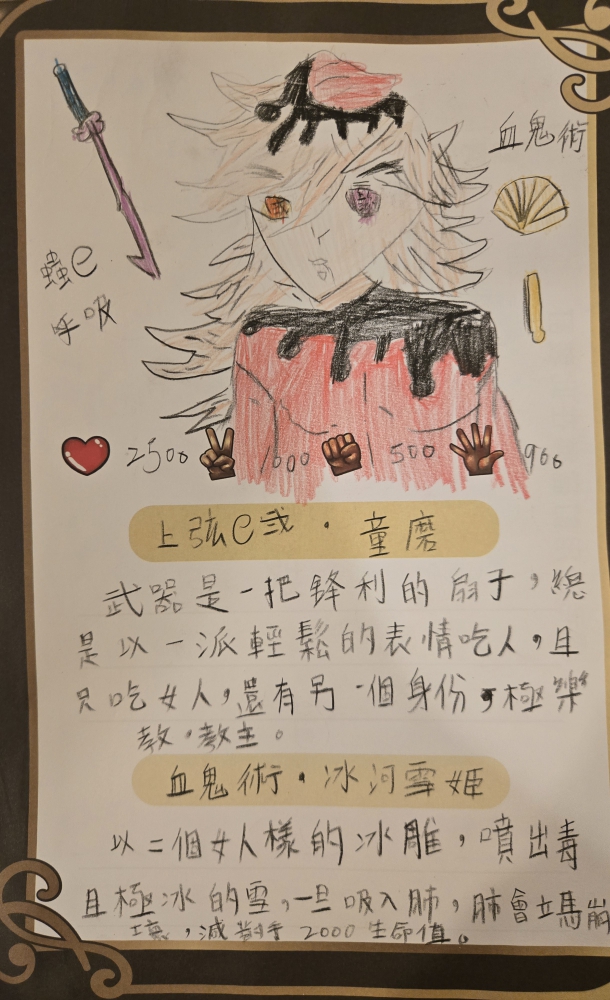 血鬼術
蟲e
呼吸
2500 1000 500 900
上弦e弐・童磨
武器是一把鋒利的扇子，總
是以一派輕鬆的表情吃人，且
只吃女人，還有另一個身份，極樂
教，教主。
血鬼術・冰河雪姬
以二個女人樣的冰雕，噴出毒
且極冰的雪，一旦吸入肺，肺會立馬崩
壞，減對手2000生命值。